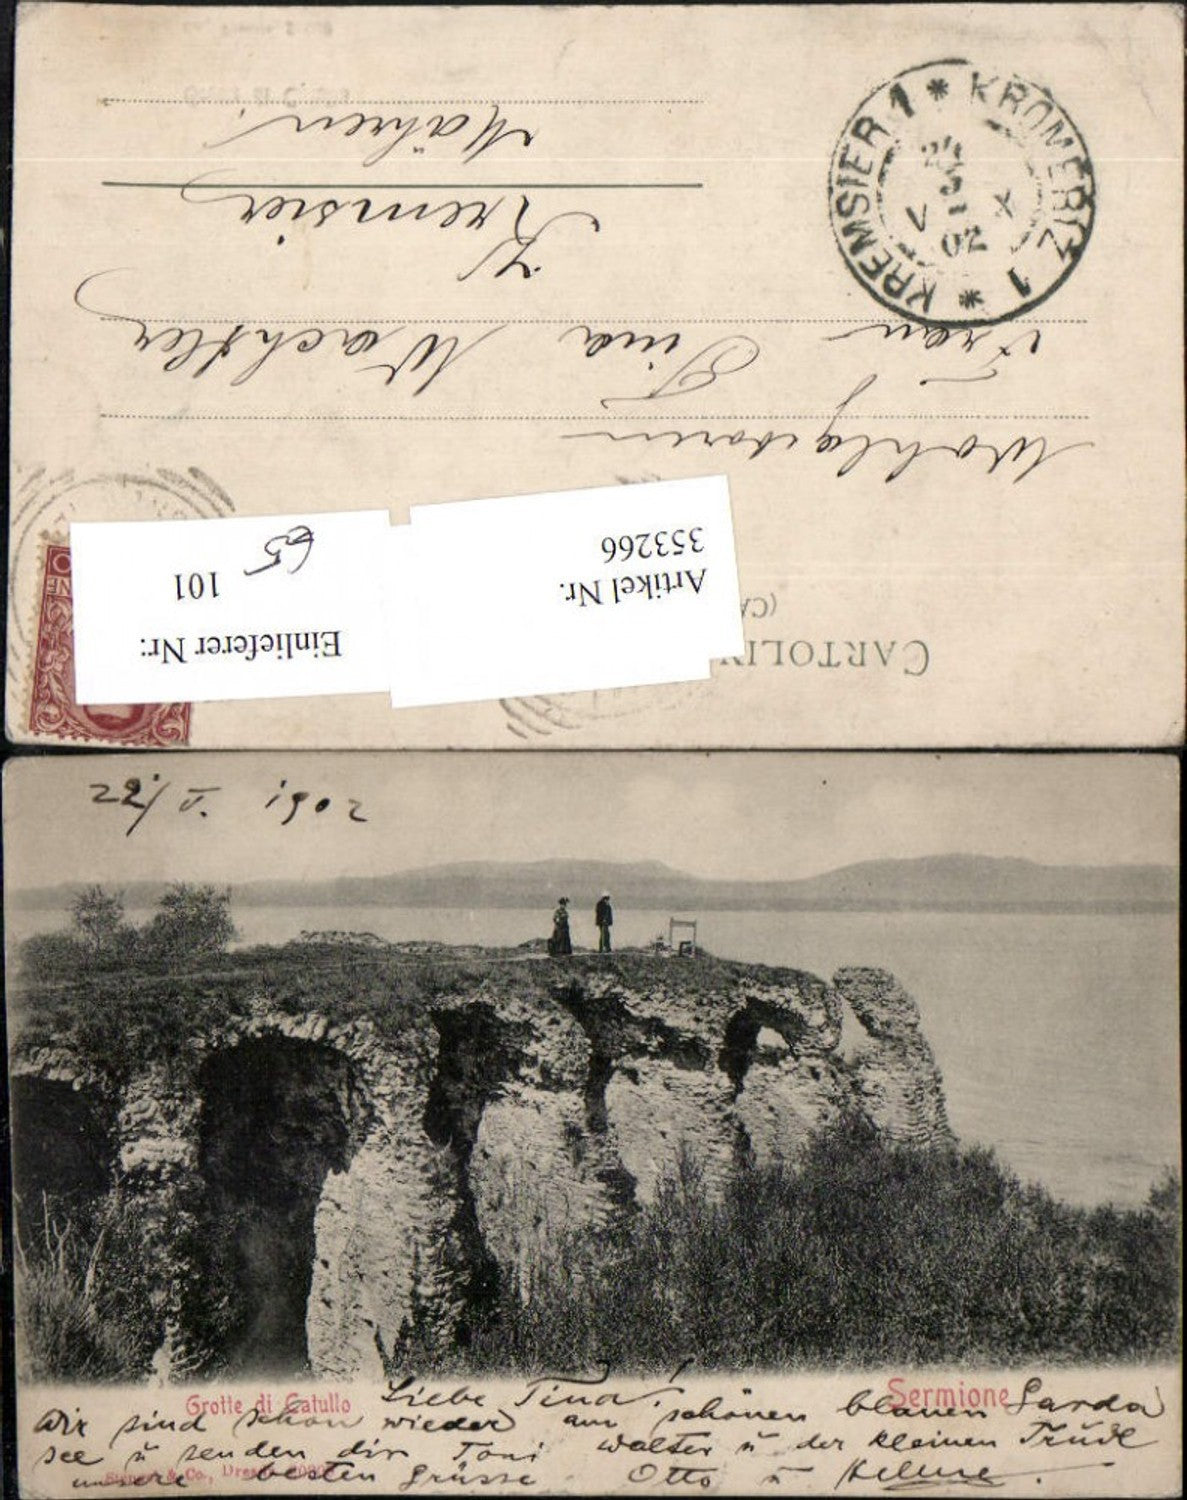 Mähren.
Kremsier
Frau Tina Wachtler
Wohlgeboren
KREMSIER 1 * KROMĚŘIŽ 1 *
02
353266
Artikel Nr.
65
101
Einlieferer Nr:
(CA
CARTOLIN
22/V. 1902
Grotte di Catullo
Sermione
Liebe Tina!
Wir sind schon wieder am schönen blauen Garda
see u senden dir Toni Walter u der kleinen Trudl
unsere besten Grüsse Otto u Helene.
& Co., Dresd